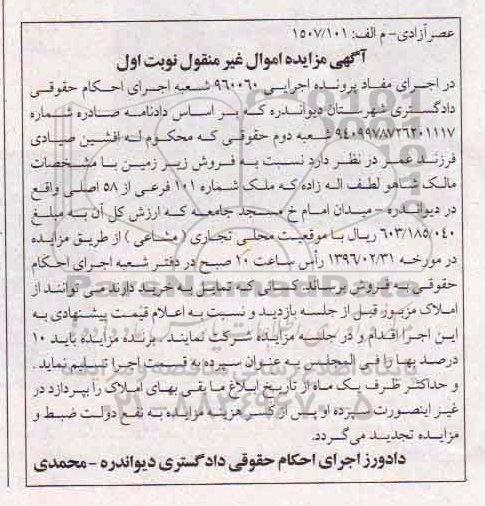 عصرآزادی- م الف: ۱۵۰۷/۱۰۱
آگهی مزایده اموال غیر منقول نوبت اول
در اجرای مفاد پرونده اجرایی ۹۶۰۰۶۰ شعبه اجرای احکام حقوقی
دادگستری شهرستان دیواندره که بر اساس دادنامه صادره شماره
۹۴۰۹۹۷۸۷۲۶۲۰۱۱۱۷ شعبه دوم حقوقی که محکوم له افشین صیادی
فرزند عمر در نظر دارد نسبت به فروش زیر زمین با مشخصات
مالک شاهو لطف اله زاده که ملک شماره ۱۰۱ فرعی از ۵۸ اصلی واقع
در دیواندره - میدان امام خ مسجد جامعه که ارزش کل آن به مبلغ
۶۰۳/۱۸۵/۰۴۰ ریال با مرقعیت محلی تجاری (مشاعی) از طریق مزایده
در مورخه ۱۳۹۶/۰۲/۳۱ رأس ساعت ۱۰ صبح در دفتر شعبه اجرای احکام
حقوقی به فروش برساند. کسانی که تمایل به خرید دارند می توانند از
املاک مزبور قبل از جلسه بازدید و نسبت به اعلام قیمت پیشنهادی به
این اجرا اقدام و در جلسه مزایده شرکت نمایند. برنده مزایده باید ۱۰
درصد بها را فی المجلس به عنوان سپرده به قسمت اجرا تسلیم نماید.
و حداکثر ظرف یک ماه از تاریخ ابلاغ ما بقی بهای املاک را بپردازد در
غیر اینصورت سپرده او پس از کسر هزینه مزایده به نفع دولت ضبط و
مزایده تجدید می گردد.
دادورز اجرای احکام حقوقی دادگستری دیواندره - محمدی